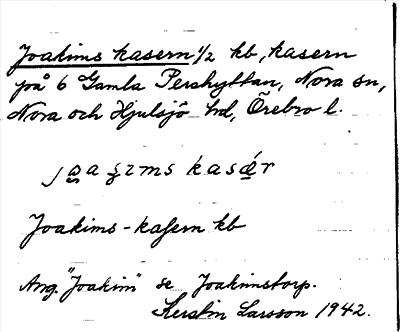 Joakims kasern ½ kb, kasern
på 6 Gamla Pershyttan, Nora sn,
Nora och Hjulsjö hd, Örebro l.
kasǽr
Joakims-kasern kb
Ang. "Joakim" se Joakimstorp.
Kerstin Larsson 1942.